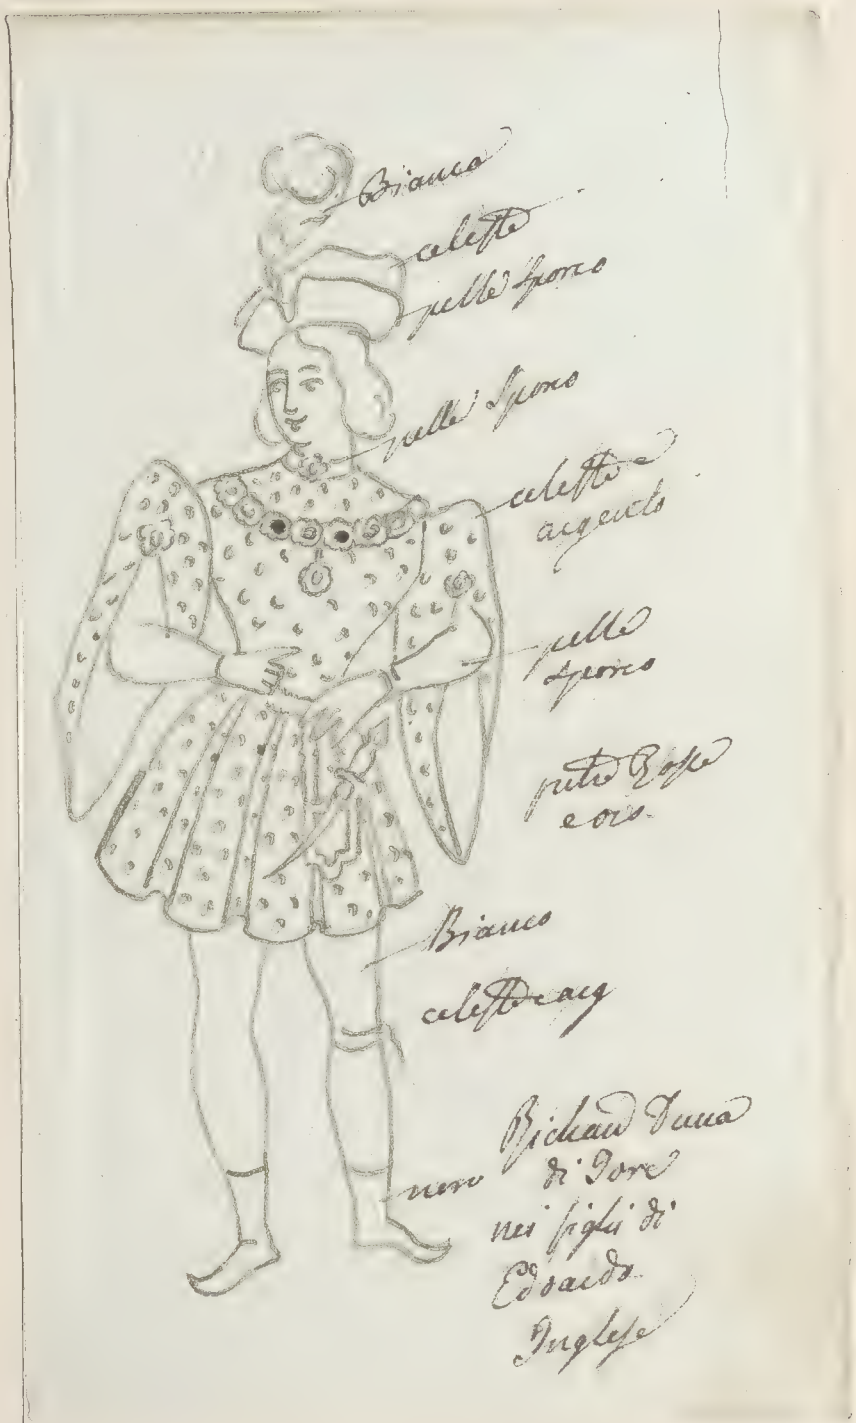 Bianca
celeste
pelle sporco
pelle sporco
celeste e
argento
pelle
sporco
pietre Rosse
e oro.
Bianco
celeste e arg
nero
Richard Duca
di Jorc
nei figli di
Edoardo
Inglese